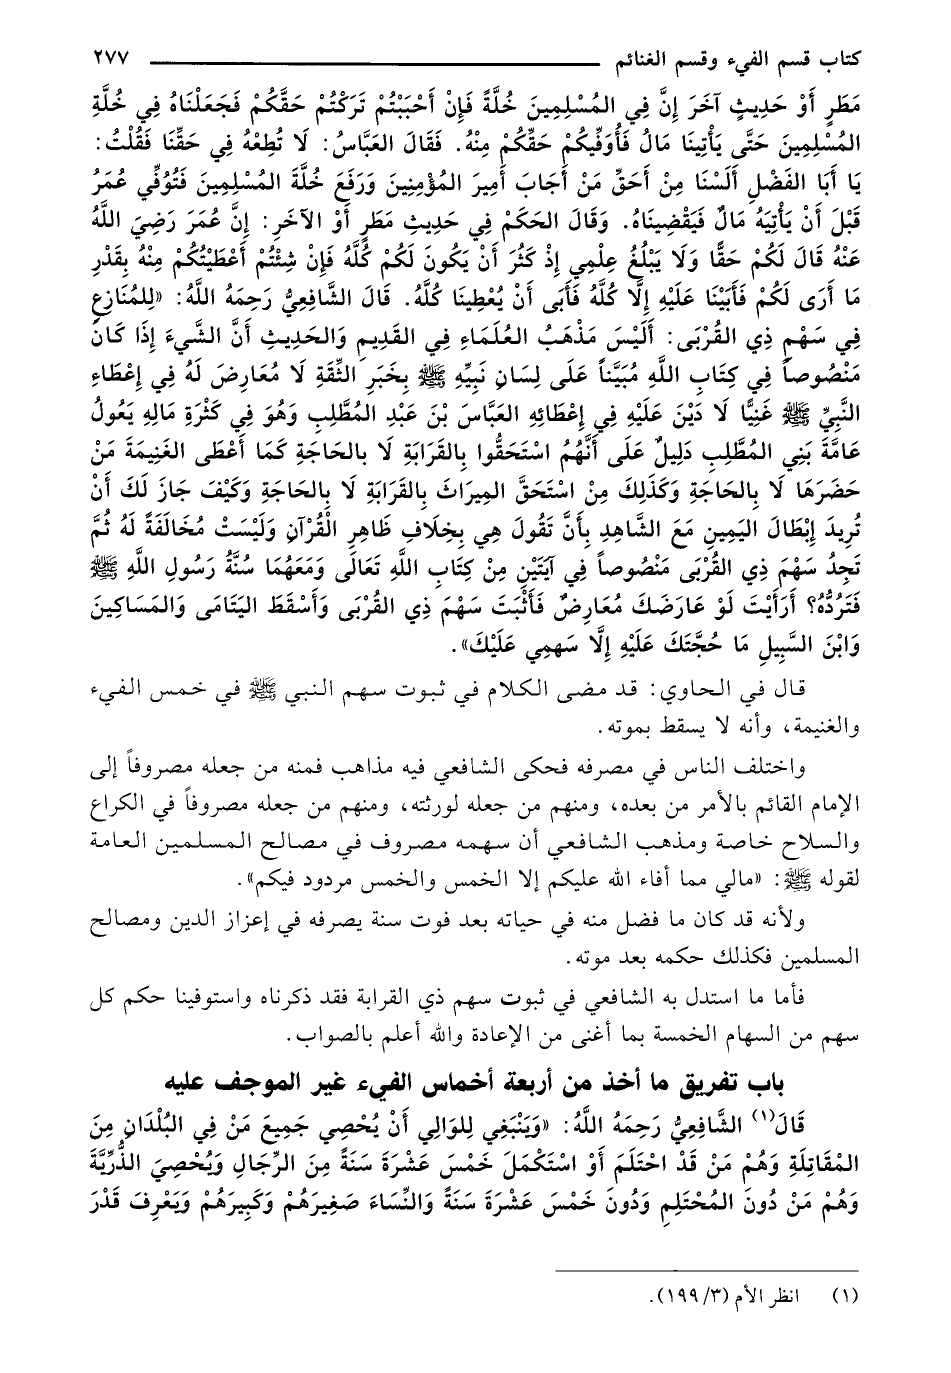 كتاب قسم الفيء وقسم الغنائم ٢٧٧
مَطَرٍ أَوْ حَدِيثٍ آخَرَ إِنَّ فِي المُسْلِمِينَ خُلَّةً فَإِنْ أَحْبَبْتُمْ تَرَكْتُمْ حَقَّكُمْ فَجَعَلْنَاهُ فِي خُلَّةِ
المُسْلِمِينَ حَتَّى يَأْتِينَا مَالٌ فَأُوَفِّيكُمْ حَقَّكُمْ مِنْهُ. فَقَالَ العَبَّاسُ: لَا تُطِعْهُ فِي حَقِّنَا فَقُلْتُ:
يَا أَبَا الفَضْلِ أَلَسْنَا مِنْ أَحَقِّ مَنْ أَجَابَ أَمِيرَ المُؤْمِنِينَ وَرَفَعَ خُلَّةَ المُسْلِمِينَ فَتُوُفِّي عُمَرُ
قَبْلَ أَنْ يَأْتِيَهُ مَالٌ فَيَقْضِينَاهُ. وَقَالَ الحَكَمُ فِي حَدِيثِ مَطَرٍ أَوْ الآخَرِ: إِنَّ عُمَرَ رَضِيَ اللَّهُ
عَنْهُ قَالَ لَكُمْ حَقًّا وَلَا يَبْلُغُ عِلْمِي إِذْ كَثُرَ أَنْ يَكُونَ لَكُمْ كُلُّهُ فَإِنْ شِئْتُمْ أَعْطَيْتُكُمْ مِنْهُ بِقَدْرِ
مَا أَرَى لَكُمْ فَأَبَيْنَا عَلَيْهِ إِلَّا كُلَّهُ فَأَبَى أَنْ يُعْطِينَا كُلَّهُ. قَالَ الشَّافِعِيُّ رَحِمَهُ اللَّهُ: «لِلمُنَازِعِ
فِي سَهْمِ ذِي القُرْبَى: أَلَيْسَ مَذْهَبُ العُلَمَاءِ فِي القَدِيمِ وَالحَدِيثِ أَنَّ الشَّيءَ إِذَا كَانَ
مَنْصُوصاً فِي كِتَابِ اللَّهِ مُبَيَّناً عَلَى لِسَانِ نَبِيِّهِ ﷺ بِخَبَرِ الثِّقَةِ لَا مُعَارِضَ لَهُ فِي إِعْطَاءِ
النَّبِيِّ ﷺ غَنِيًّا لَا دَيْنَ عَلَيْهِ فِي إِعْطَائِهِ العَبَّاسَ بْنَ عَبْدِ المُطَّلِبِ وَهُوَ فِي كَثْرَةِ مَالِهِ يَعُولُ
عَامَّةَ بَنِي المُطَّلِبِ دَلِيلٌ عَلَى أَنَّهُمْ اسْتَحَقُّوا بِالقَرَابَةِ لَا بِالحَاجَةِ كَمَا أَعْطَى الغَنِيمَةَ مَنْ
حَضَرَهَا لَا بِالحَاجَةِ وَكَذَلِكَ مِنْ اسْتَحَقَّ المِيرَاثَ بِالقَرَابَةِ لَا بِالحَاجَةِ وَكَيْفَ جَازَ لَكَ أَنْ
تُرِيدَ إِبْطَالَ اليَمِينِ مَعَ الشَّاهِدِ بِأَنَّ تَقُولَ هِي بِخِلَافِ ظَاهِرِ الْقُرْآنِ وَلَيْسَتْ مُخَالَفَةً لَهُ ثُمَّ
تَجِدُ سَهْمَ ذِي القُرْبَى مَنْصُوصاً فِي آيَتَيْنِ مِنْ كِتَابِ اللَّهِ تَعَالَى وَمَعَهُمَا سُنَّةُ رَسُولِ اللَّهِ ﷺ
فَتَرُدُّهُ؟ أَرَأَيْتَ لَوْ عَارَضَكَ مُعَارِضٌ فَأَثْبَتَ سَهْمَ ذِي القُرْبَى وَأَسْقَطَ اليَتَامَى وَالمَسَاكِينَ
وَابْنَ السَّبِيلِ مَا حُجَّتَكَ عَلَيْهِ إِلَّا سَهمِي عَلَيْكَ».
قال في الحاوي: قد مضى الكلام في ثبوت سهم النبي ﷺ في خمس الفيء
والغنيمة، وأنه لا يسقط بموته.
واختلف الناس في مصرفه فحكى الشافعي فيه مذاهب فمنه من جعله مصروفاً إلى
الإمام القائم بالأمر من بعده، ومنهم من جعله لورثته، ومنهم من جعله مصروفاً في الكراع
والسلاح خاصة ومذهب الشافعي أن سهمه مصروف في مصالح المسلمين العامة
لقوله ﷺ: «مالي مما أفاء الله عليكم إلا الخمس والخمس مردود فيكم».
ولأنه قد كان ما فضل منه في حياته بعد فوت سنة يصرفه في إعزاز الدين ومصالح
المسلمين فكذلك حكمه بعد موته.
فأما ما استدل به الشافعي في ثبوت سهم ذي القرابة فقد ذكرناه واستوفينا حكم كل
سهم من السهام الخمسة بما أغنى من الإعادة والله أعلم بالصواب.
باب تفريق ما أخذ من أربعة أخماس الفيء غير الموجف عليه
قَالَ(١) الشَّافِعِيُّ رَحِمَهُ اللَّهُ: «وَيَنْبَغِي لِلوَالِي أَنْ يُحْصِي جَمِيعَ مَنْ فِي البُلْدَانِ مِنَ
المْقَاتِلَةِ وَهُمْ مَنْ قَدْ احْتَلَمَ أَوْ اسْتَكْمَلَ خَمْسَ عَشْرَةَ سَنَةً مِنَ الرِّجَالِ وَيُحْصِيَ الذُّرِّيَّةَ
وَهُمْ مَنْ دُونَ المُحْتَلِمِ وَدُونَ خَمْسَ عَشْرَةَ سَنَةً وَالنِّسَاءَ صَغِيرَهُمْ وَكَبِيرَهُمْ وَيَعْرِفَ قَدْرَ
(١) انظر الأم (٣/ ١٩٩).